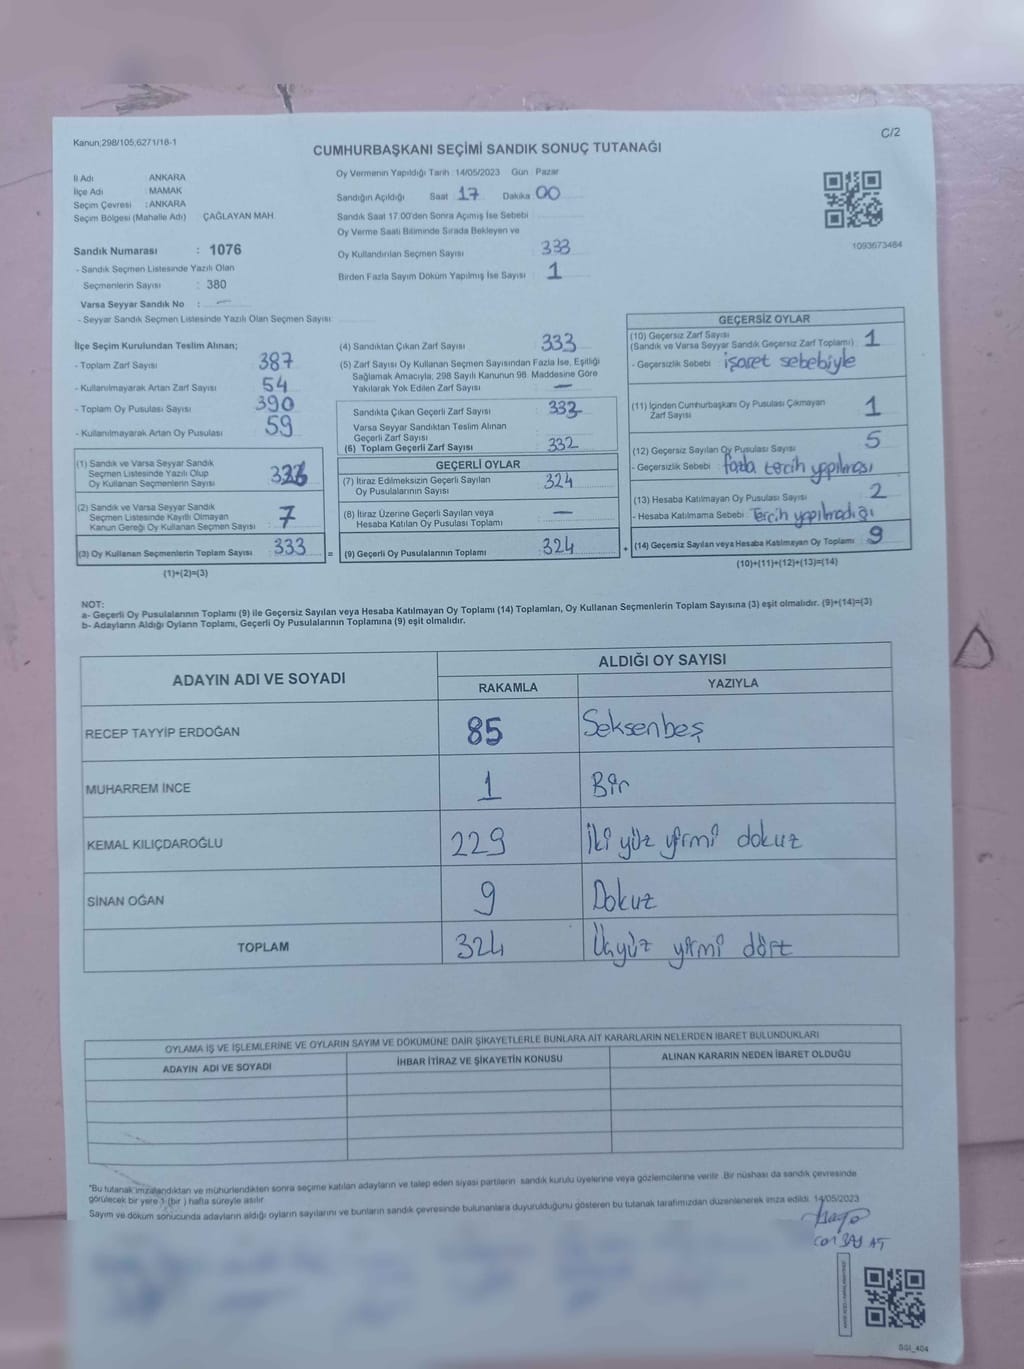 Kanun;298/105;6271/18-1
C/2
CUMHURBAŞKANI SEÇİMİ SANDIK SONUÇ TUTANAĞI
İl Adı : ANKARA
İlçe Adı : MAMAK
Seçim Çevresi : ANKARA
Seçim Bölgesi (Mahalle Adı) ÇAĞLAYAN MAH.
Sandık Numarası : 1076
- Sandık Seçmen Listesinde Yazılı Olan
Seçmenlerin Sayısı : 380
Varsa Seyyar Sandık No : —
- Seyyar Sandık Seçmen Listesinde Yazılı Olan Seçmen Sayısı:
Oy Vermenin Yapıldığı Tarih 14/05/2023 Gün Pazar
Sandığın Açıldığı Saat 17 Dakika 00
Sandık Saat 17.00'den Sonra Açılmış İse Sebebi
Oy Verme Saati Bitiminde Sırada Bekleyen ve
Oy Kullandırılan Seçmen Sayısı 333
Birden Fazla Sayım Döküm Yapılmış İse Sayısı : 1
1093673484
İlçe Seçim Kurulundan Teslim Alınan;
- Toplam Zarf Sayısı : 387
- Kullanılmayarak Artan Zarf Sayısı : 54
- Toplam Oy Pusulası Sayısı : 390
- Kullanılmayarak Artan Oy Pusulası : 59
(1) Sandık ve Varsa Seyyar Sandık
Seçmen Listesinde Yazılı Olup
Oy Kullanan Seçmenlerin Sayısı
(2) Sandık ve Varsa Seyyar Sandık
Seçmen Listesinde Kayıtlı Olmayan
Kanun Gereği Oy Kullanan Seçmen Sayısı : 7
(3) Oy Kullanan Seçmenlerin Toplam Sayısı : 333 =
(1)+(2)=(3)
(4) Sandıktan Çıkan Zarf Sayısı : 333
(5) Zarf Sayısı Oy Kullanan Seçmen Sayısından Fazla İse, Eşitliği
Sağlamak Amacıyla; 298 Sayılı Kanunun 98. Maddesine Göre
Yakılarak Yok Edilen Zarf Sayısı : —
Sandıkta Çıkan Geçerli Zarf Sayısı :
Varsa Seyyar Sandıktan Teslim Alınan
Geçerli Zarf Sayısı :
(6) Toplam Geçerli Zarf Sayısı : 332
GEÇERLİ OYLAR
(7) İtiraz Edilmeksizin Geçerli Sayılan
Oy Pusulalarının Sayısı : 324
(8) İtiraz Üzerine Geçerli Sayılan veya
Hesaba Katılan Oy Pusulası Toplamı : —
(9) Geçerli Oy Pusulalarının Toplamı : 324 +
GEÇERSİZ OYLAR
(10) Geçersiz Zarf Sayısı
(Sandık ve Varsa Seyyar Sandık Geçersiz Zarf Toplamı) : 1
- Geçersizlik Sebebi : işaret sebebiyle
(11) İçinden Cumhurbaşkanı Oy Pusulası Çıkmayan
Zarf Sayısı : 1
(12) Geçersiz Sayılan Oy Pusulası Sayısı : 5
- Geçersizlik Sebebi : fazla tercih yapılması
(13) Hesaba Katılmayan Oy Pusulası Sayısı : 2
- Hesaba Katılmama Sebebi : Tercih yapılmadığı
(14) Geçersiz Sayılan veya Hesaba Katılmayan Oy Toplamı : 9
(10)+(11)+(12)+(13)=(14)
NOT:
a- Geçerli Oy Pusulalarının Toplamı (9) ile Geçersiz Sayılan veya Hesaba Katılmayan Oy Toplamı (14) Toplamları, Oy Kullanan Seçmenlerin Toplam Sayısına (3) eşit olmalıdır. (9)+(14)=(3)
b- Adayların Aldığı Oyların Toplamı, Geçerli Oy Pusulalarının Toplamına (9) eşit olmalıdır.
ADAYIN ADI VE SOYADI
ALDIĞI OY SAYISI
RAKAMLA YAZIYLA
RECEP TAYYİP ERDOĞAN 85 Seksenbeş
MUHARREM İNCE 1 Bir
KEMAL KILIÇDAROĞLU 229 İki yüz yirmi dokuz
SİNAN OĞAN 9 Dokuz
TOPLAM 324 Üçyüz yirmi dört
OYLAMA İŞ VE İŞLEMLERİNE VE OYLARIN SAYIM VE DÖKÜMÜNE DAİR ŞİKAYETLERLE BUNLARA AİT KARARLARIN NELERDEN İBARET BULUNDUKLARI
ADAYIN ADI VE SOYADI İHBAR İTİRAZ VE ŞİKAYETİN KONUSU ALINAN KARARIN NEDEN İBARET OLDUĞU
*Bu tutanak imzalandıktan ve mühürlendikten sonra seçime katılan adayların ve talep eden siyasi partilerin sandık kurulu üyelerine veya gözlemcilerine verilir. Bir nüshası da sandık çevresinde
görülecek bir yere 1 (bir) hafta süreyle asılır.
Sayım ve döküm sonucunda adayların aldığı oyların sayılarını ve bunların sandık çevresinde bulunanlara duyurulduğunu gösteren bu tutanak tarafımızdan düzenlenerek imza edildi. 14/05/2023